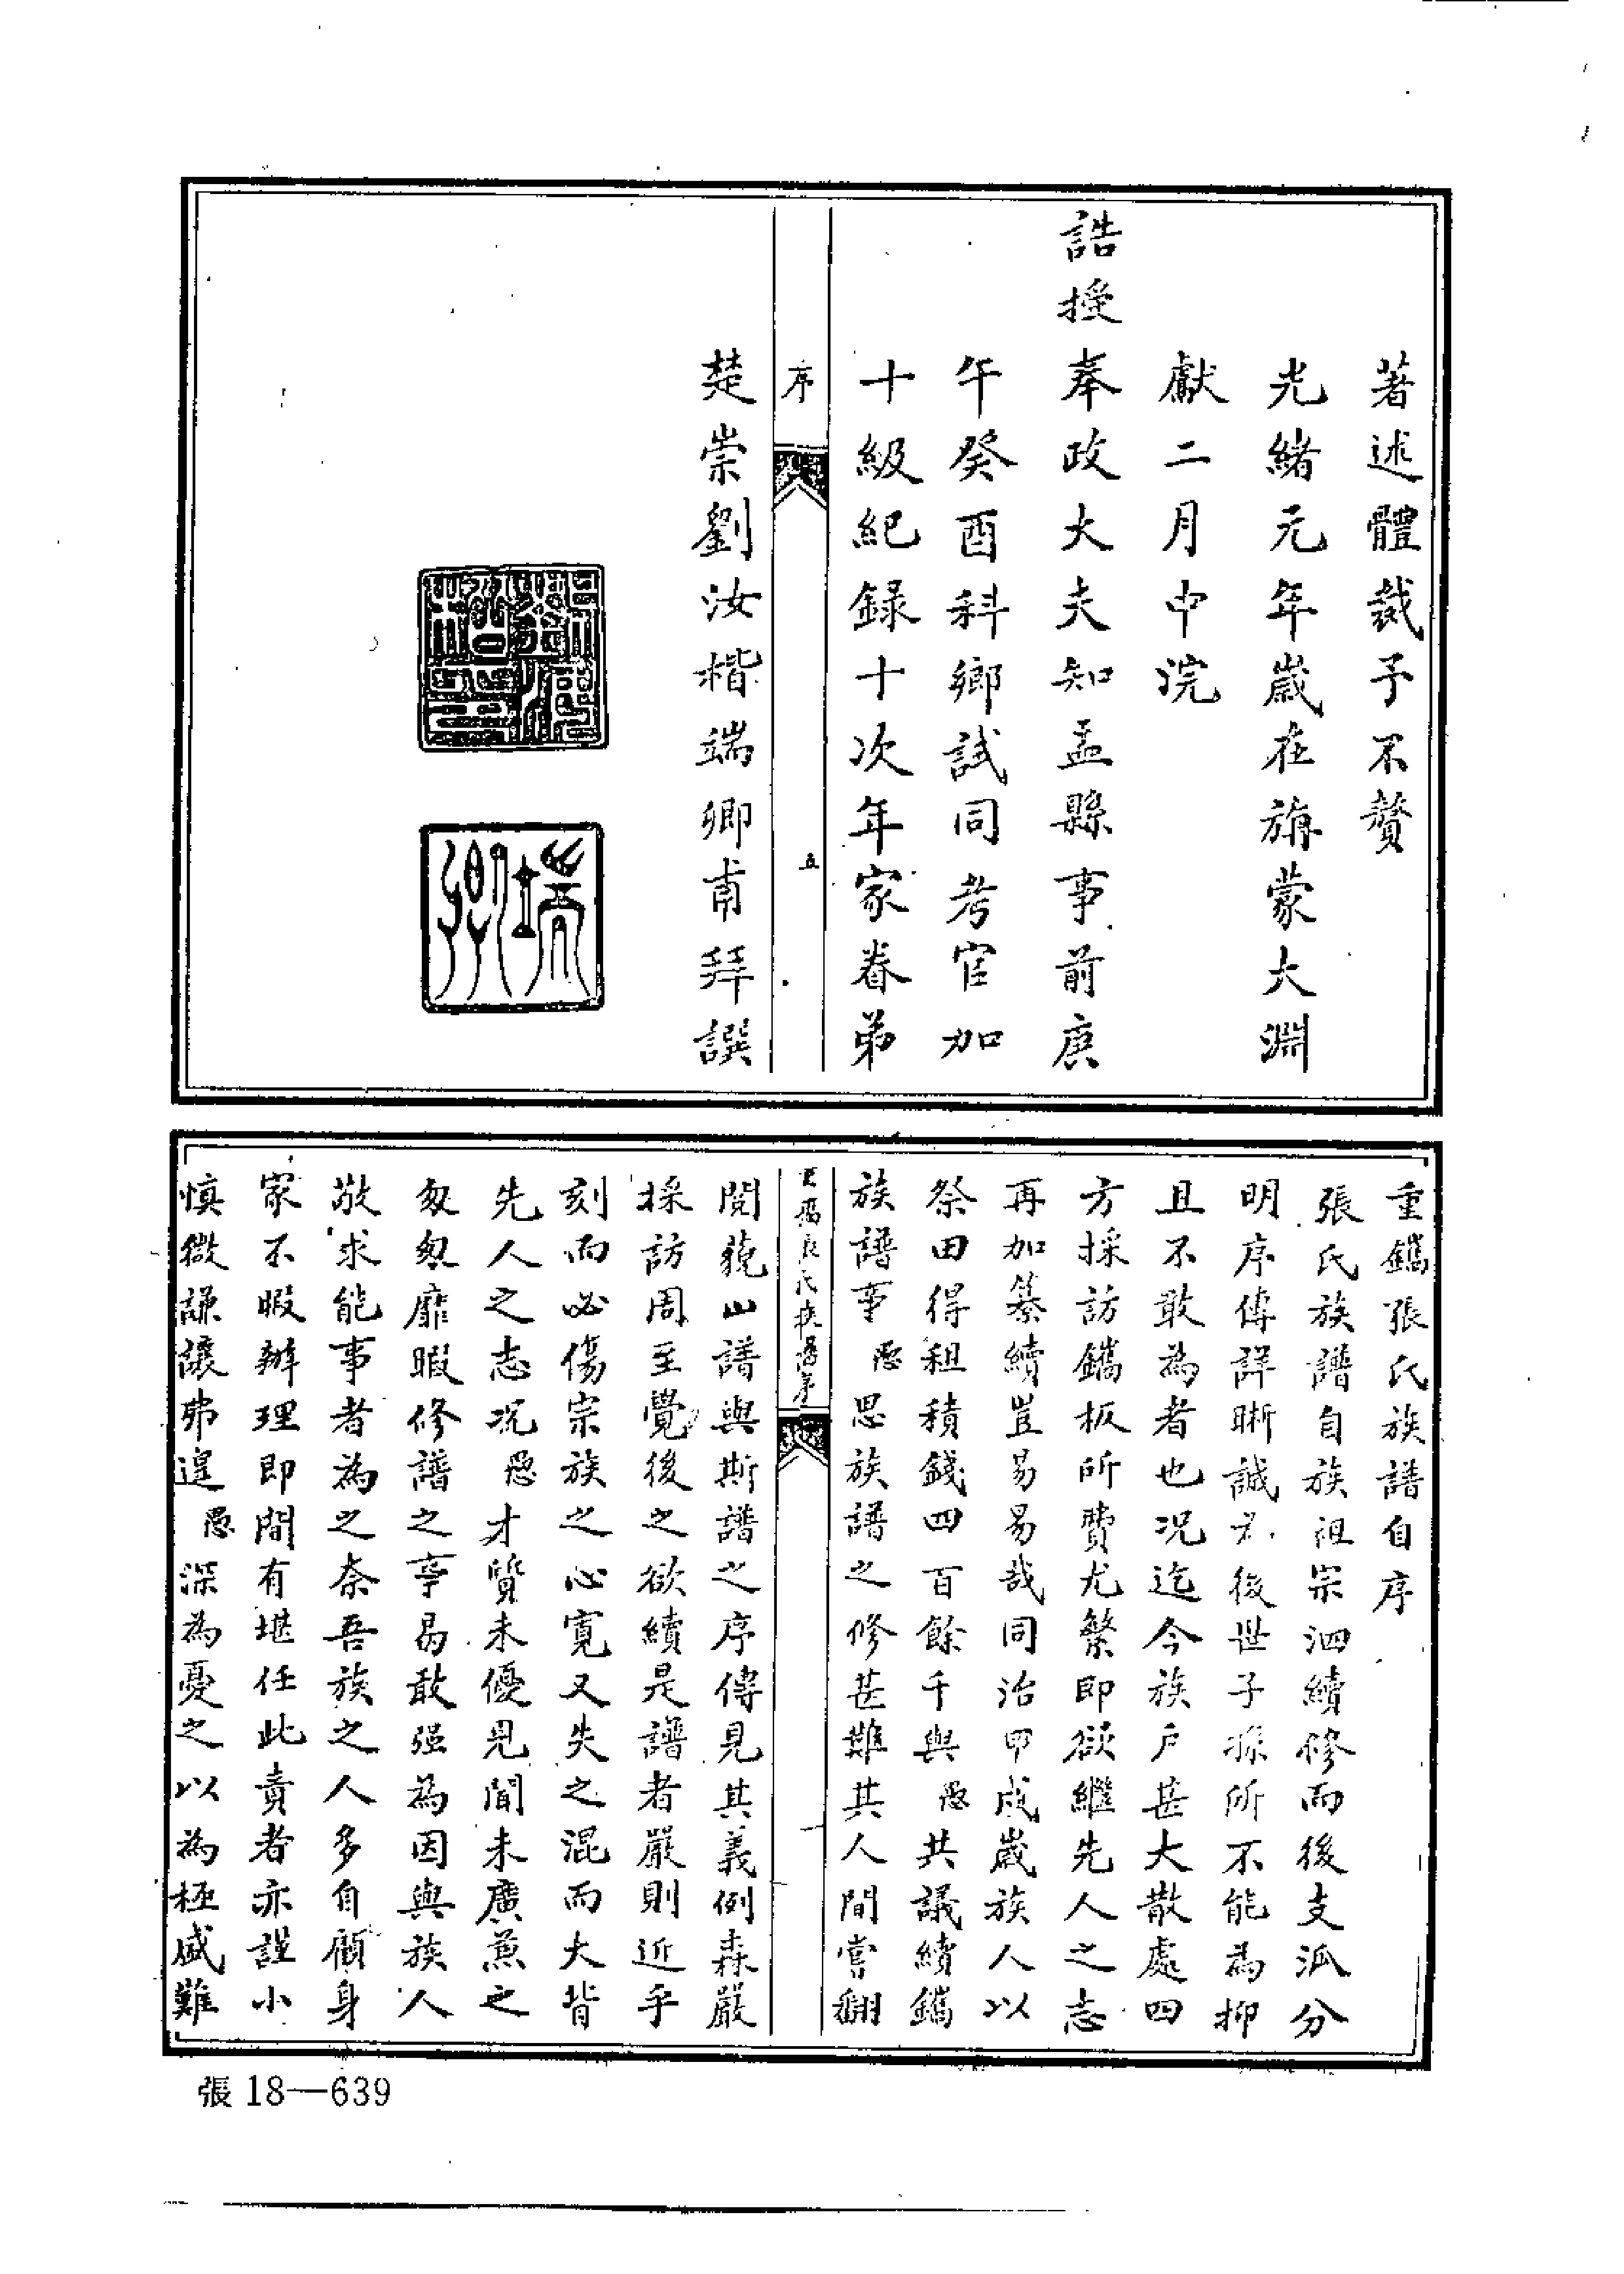 著述體裁予不贅
光緒元年歲在旃蒙大淵
獻二月中浣
誥授奉政大夫知孟縣事前庚
午癸酉科鄉試同考官加
十級紀錄十次年家眷弟
序
五
楚崇劉汝楷端卿甫拜譔
端卿
重鐫張氏族譜自序
張氏族譜自族祖宗泗續修而後支派分
明序傳詳晰誠為後世子孫所不能為抑
且不敢為者也况迄今族戶甚大散處四
方採訪鐫板所費尤繁即欲繼先人之志
再加纂續豈易易哉同治甲戌歲族人以
祭田得租積錢四百餘千與愚共議續鐫
族譜事愚思族譜之修甚難其人間嘗翻
氏族譜序
一
閱藐山譜與斯譜之序傳見其義例森嚴
採訪周至覺後之欲續是譜者嚴則近乎
刻而必傷宗族之心寬又失之混而大背
先人之志况愚才質未優見聞未廣兼之
匆匆靡暇修譜之事曷敢强為因與族人
敬求能事者為之奈吾族之人多自顧身
家不暇辦理即間有堪任此責者亦謹小
慎微謙讓弗遑愚深為憂之以為極盛難
張 18—639